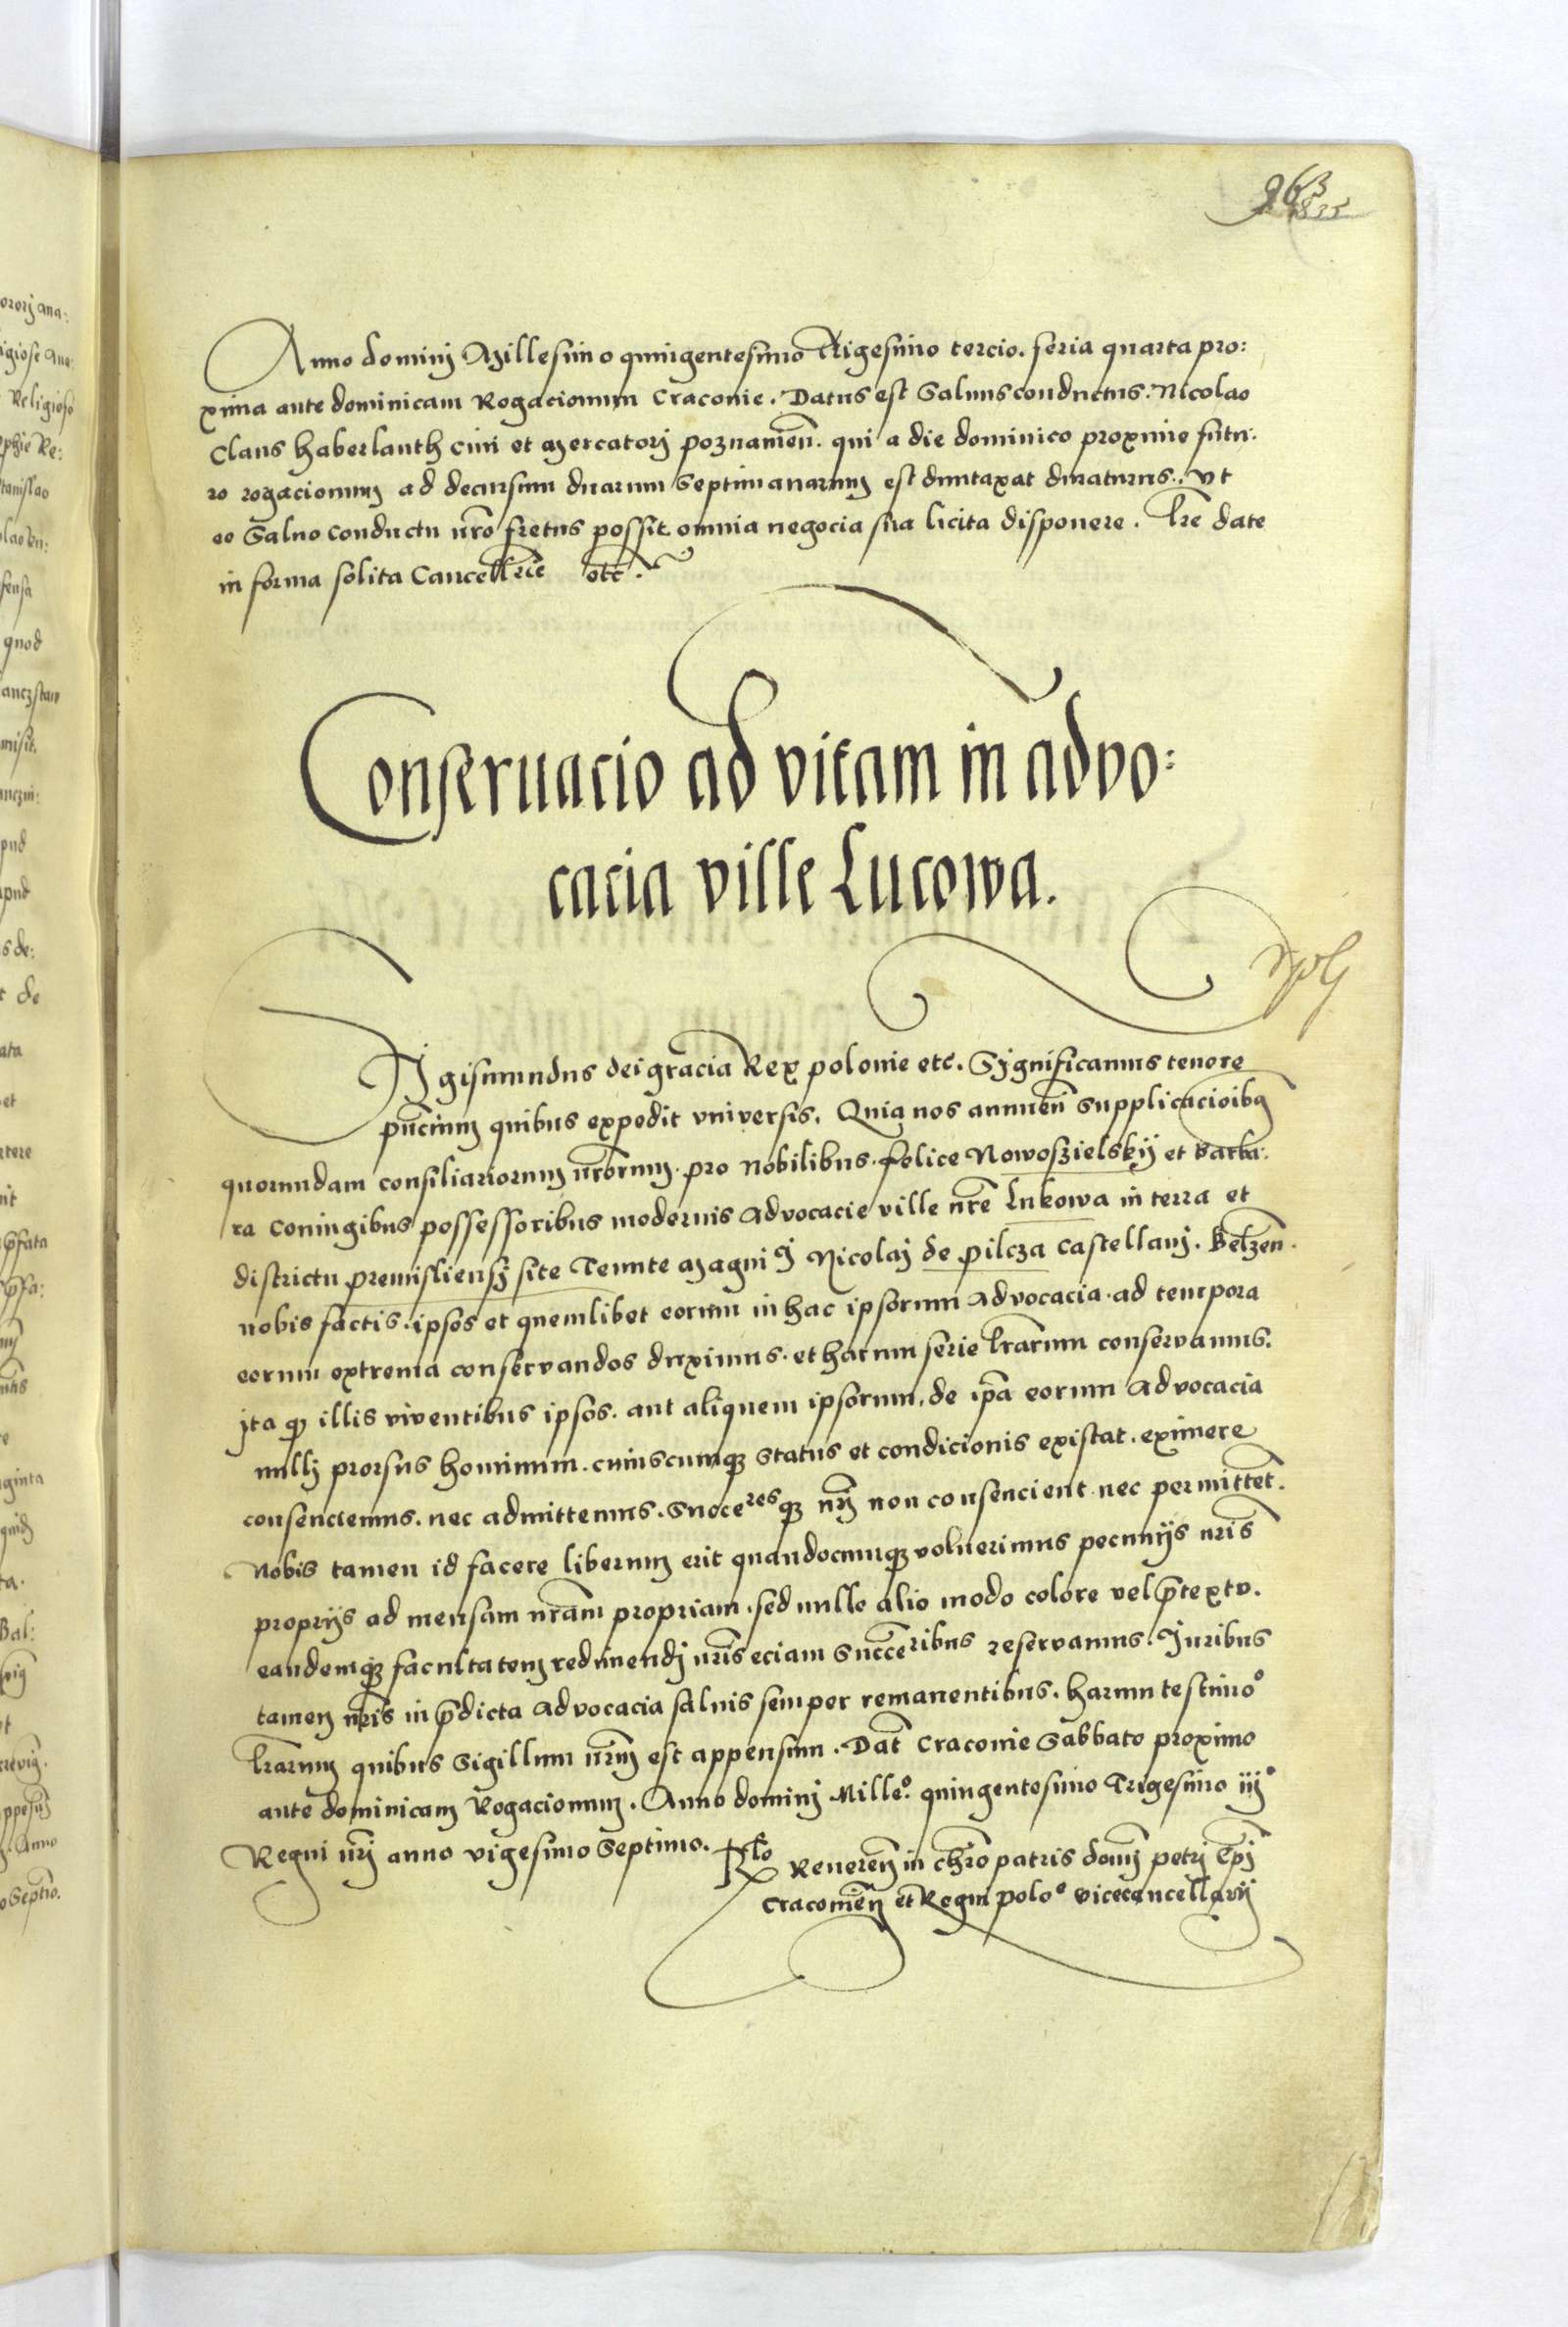 963
Anno dominj Millesimo quingentesimo Trigesimo tercio. feria quarta pro:
xima ante dominicam Rogacionum Craconie. Datus est Saluusconductus. Nicolao
Claus haberlanth ciui et Mercatorj poznanien̄. qui a die dominico proxime futu:
ro rogacionum ad decursum duarum Septimanarum est duntaxat duraturus. vt
eo Saluo conductu nr̄o fretus possit omnia negocia sua licita disponere. Lr̄e date
in forma solita Cancellr̄ie etc̄.
Conseruacio ad vitam in aduo:
cacia ville Lucowa.
Sigismundus dei gracia Rex polonie etc. Significamus tenore
pn̄cium quibus expedit vniversis. Quia nos annuen̄ supplicacioībꝫ
quorundam consiliariorum nr̄orum. pro Nobilibus. felice Nowoszielskÿ et barba:
ra coniugibus possessoribus modernis advocacie ville nr̄e Lukowa in terra et
districtu premisliensj site Tenute Magnici Nicolaj de pilcza Castellanj. Belzen̄.
nobis factis. ipsos et quemlibet eorum in hac ipsorum advocacia. ad tempora
eorum extrema conservandos duximus. et harum serie lr̄arum conservamus.
jta ꝙ illis viventibus ipsos. aut aliquem ipsorum, de ip̄a eorum advocacia
nullj prorsus hominum. cuiuscumqꝫ status et condicionis existat. eximere
consenciemus. nec admittemus. Succeresqꝫ nr̄j non consencient nec permittent̄.
Nobis tamen id facere liberum erit quandocumqꝫ voluerimus pecunijs nr̄is
proprijs ad mensam nr̄am propriam. sed nullo alio modo colore vel p̄textv.
eandemqꝫ facultatem redimendj nr̄is eciam Succeribus reservamus. Juribus
tamen nr̄is in p̄dicta advocacia saluis semper remanentibus. harum testimo°
lr̄arum quibus Sigillum nr̄um est appensum. Dat̄ Craconie Sabbato proximo
ante dominicam Rogacionum. Anno dominj Mille°. quingentesimo Trigesimo iij°
Regni nr̄j anno vigesimo Septimo. Rlo Reueren̄ in chr̄o patris domj petrj Ep̄j
Cracouien̄ et Regni polo° vicecancellarij